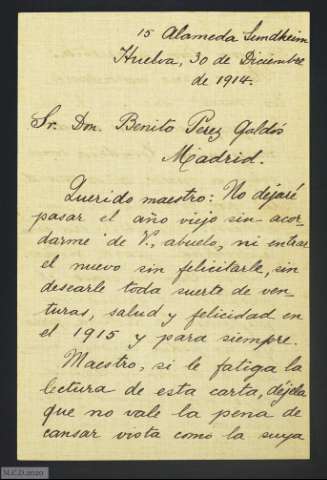 15 Alameda Sundheim
Huelva, 30 de Diciembre
de 1914.
Sr. Don. Benito Pérez Galdós
Madrid.
Querido maestro: No dejaré
pasar el año viejo sin acor-
darme de V., abuelo, ni entrar
el nuevo sin felicitarle, sin
desearle toda suerte de ven-
turas, salud y felicidad en
el 1915 y para siempre.
Maestro, si le fatiga la
lectura de esta carta, déjela
que no vale la pena de
cansar vista como la suya
M.C.D. 2020